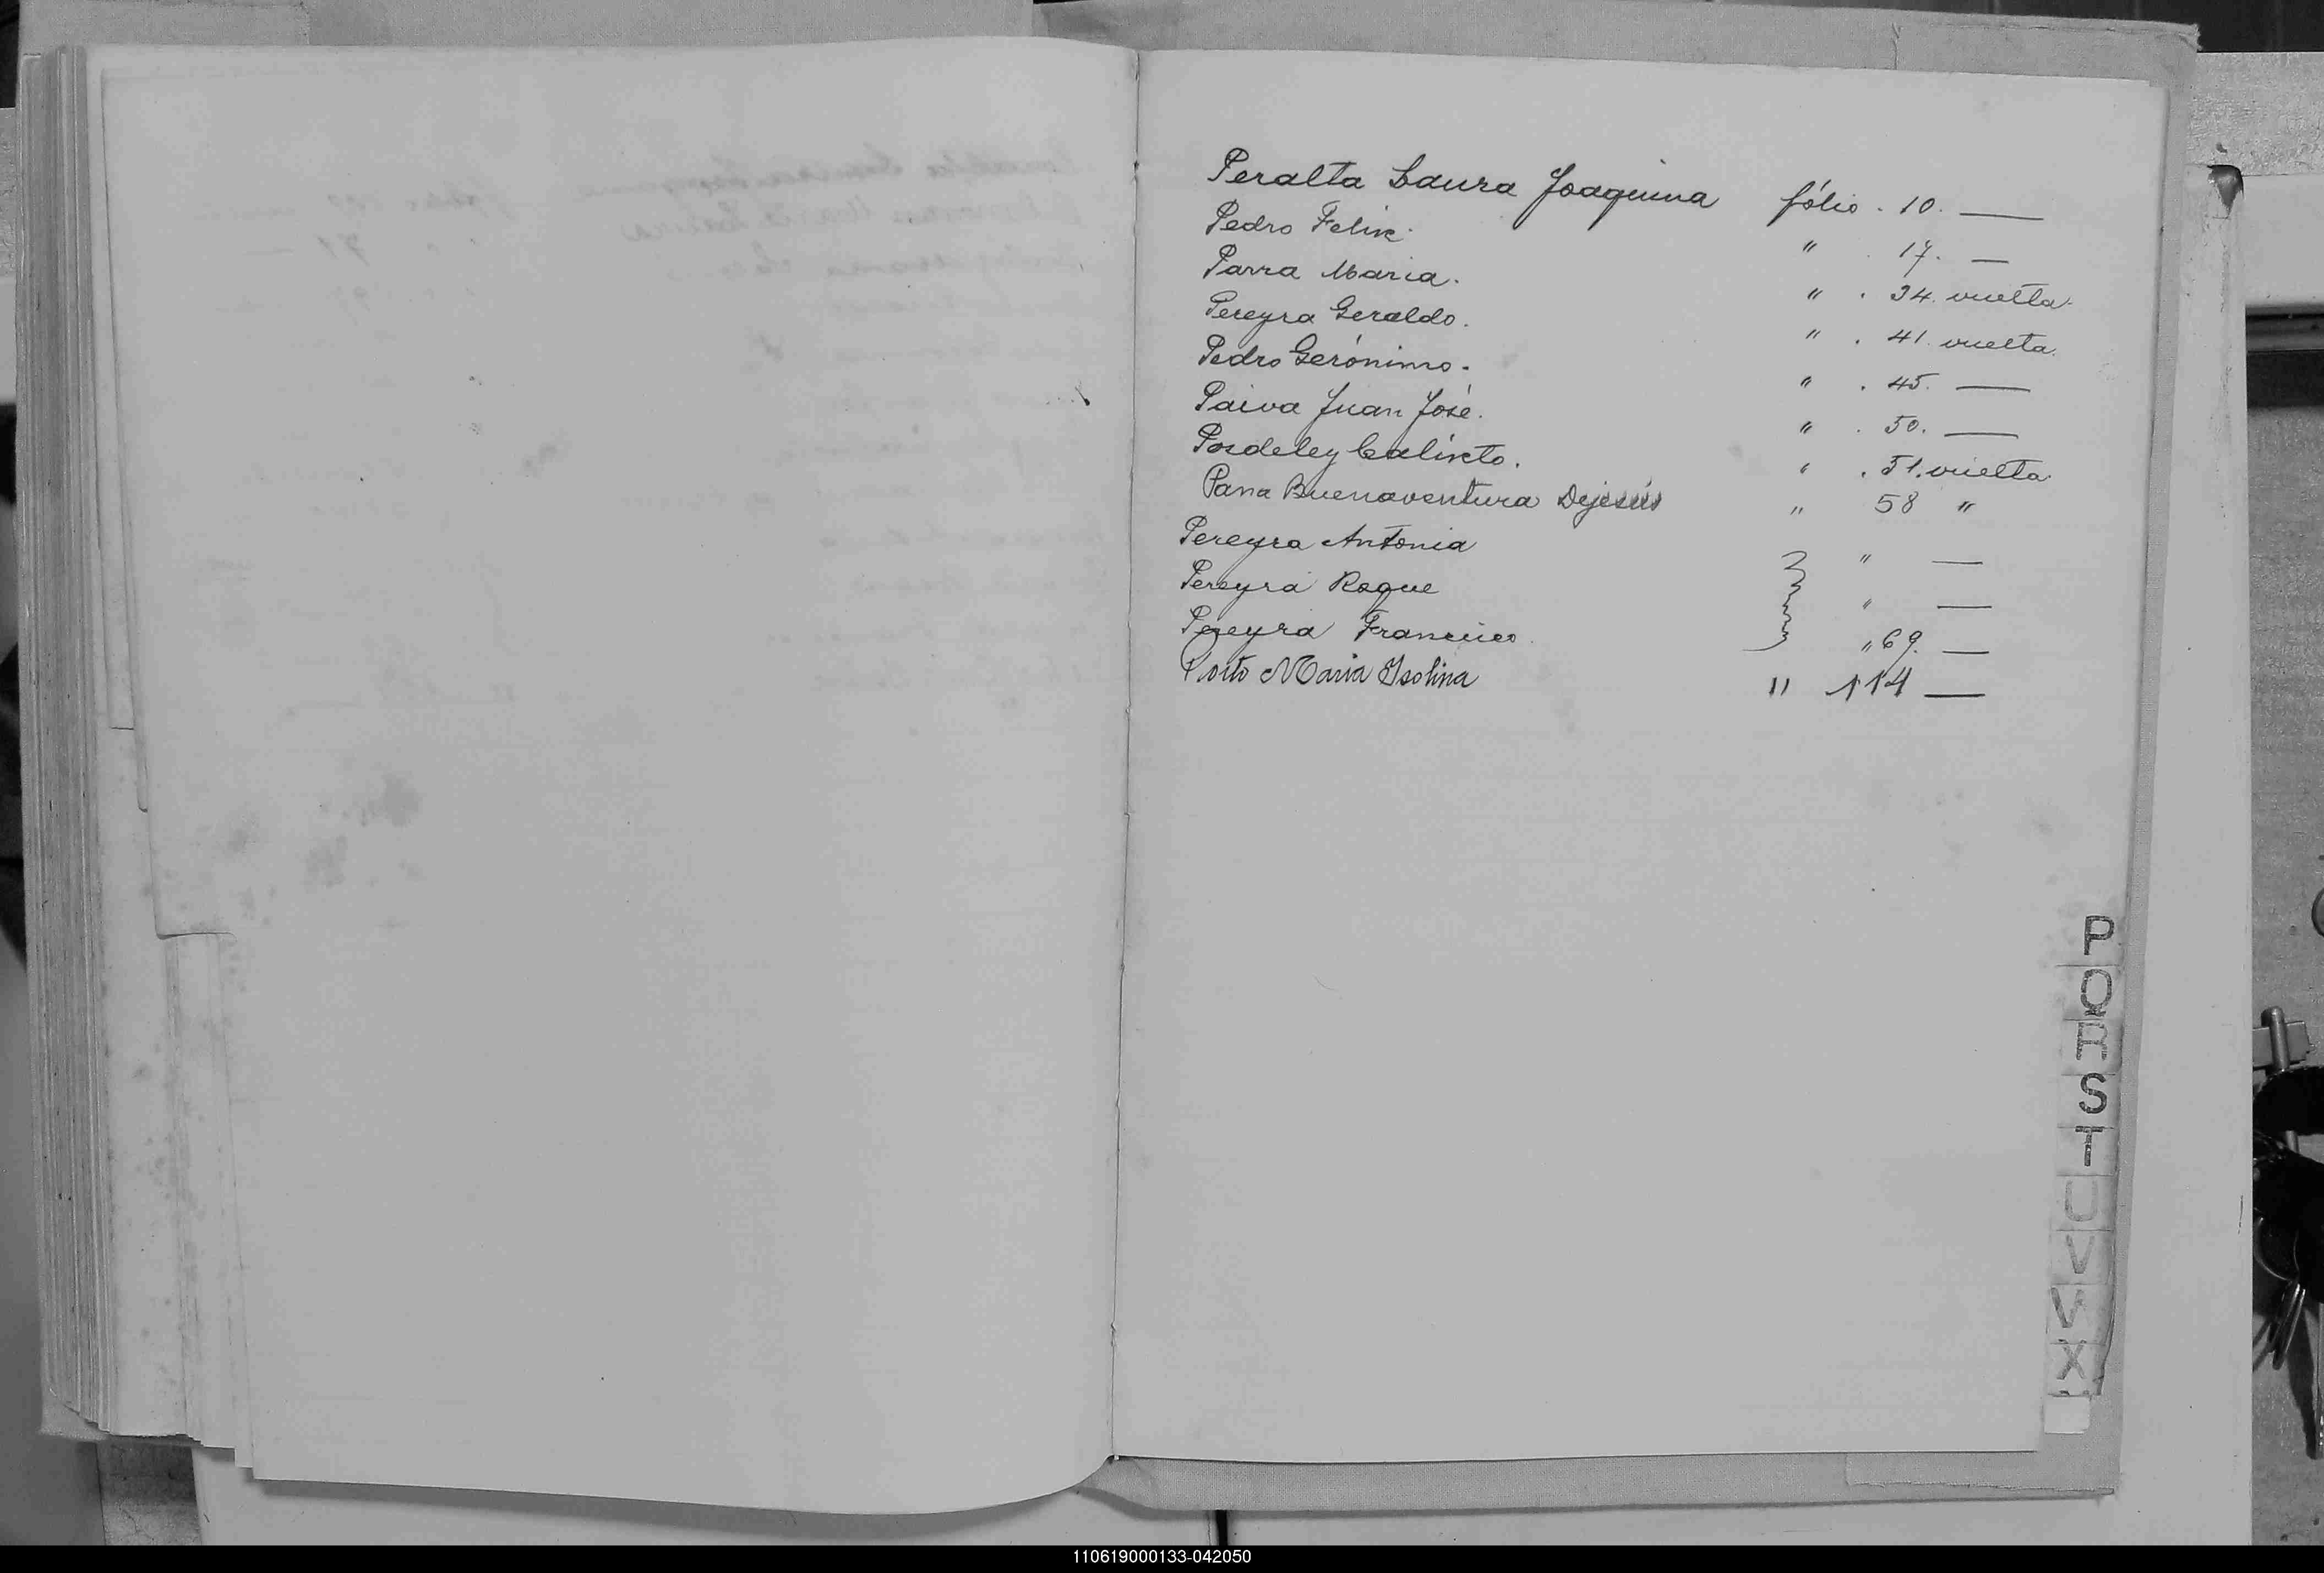 Peralta Laura Joaquina fólio . 10. —
Pedro Felix. " . 17. —
Parra Maria. " . 34. vuelta.
Pereyra Geraldo. " . 41. vuelta.
Pedro Gerónimo. " . 45. —
Paiva Juan José. " . 50. —
Posdeley Calixto. " . 51. vuelta.
Parra Buenaventura Dejesús " 58 "
Pereyra Antonia " —
Pereyra Roque " —
Pereyra Francisco. " 69. —
Porto Maria Isolina " 114 —
P
Q
R
S
T
U
V
V
X
110619000133-042050